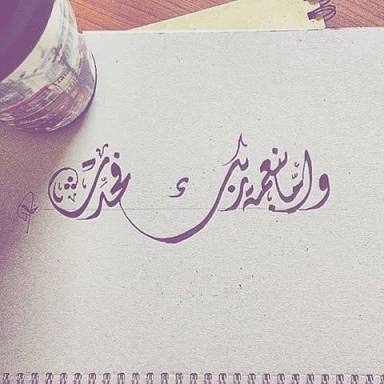 وأمّا بنعمة ربك فحدّث